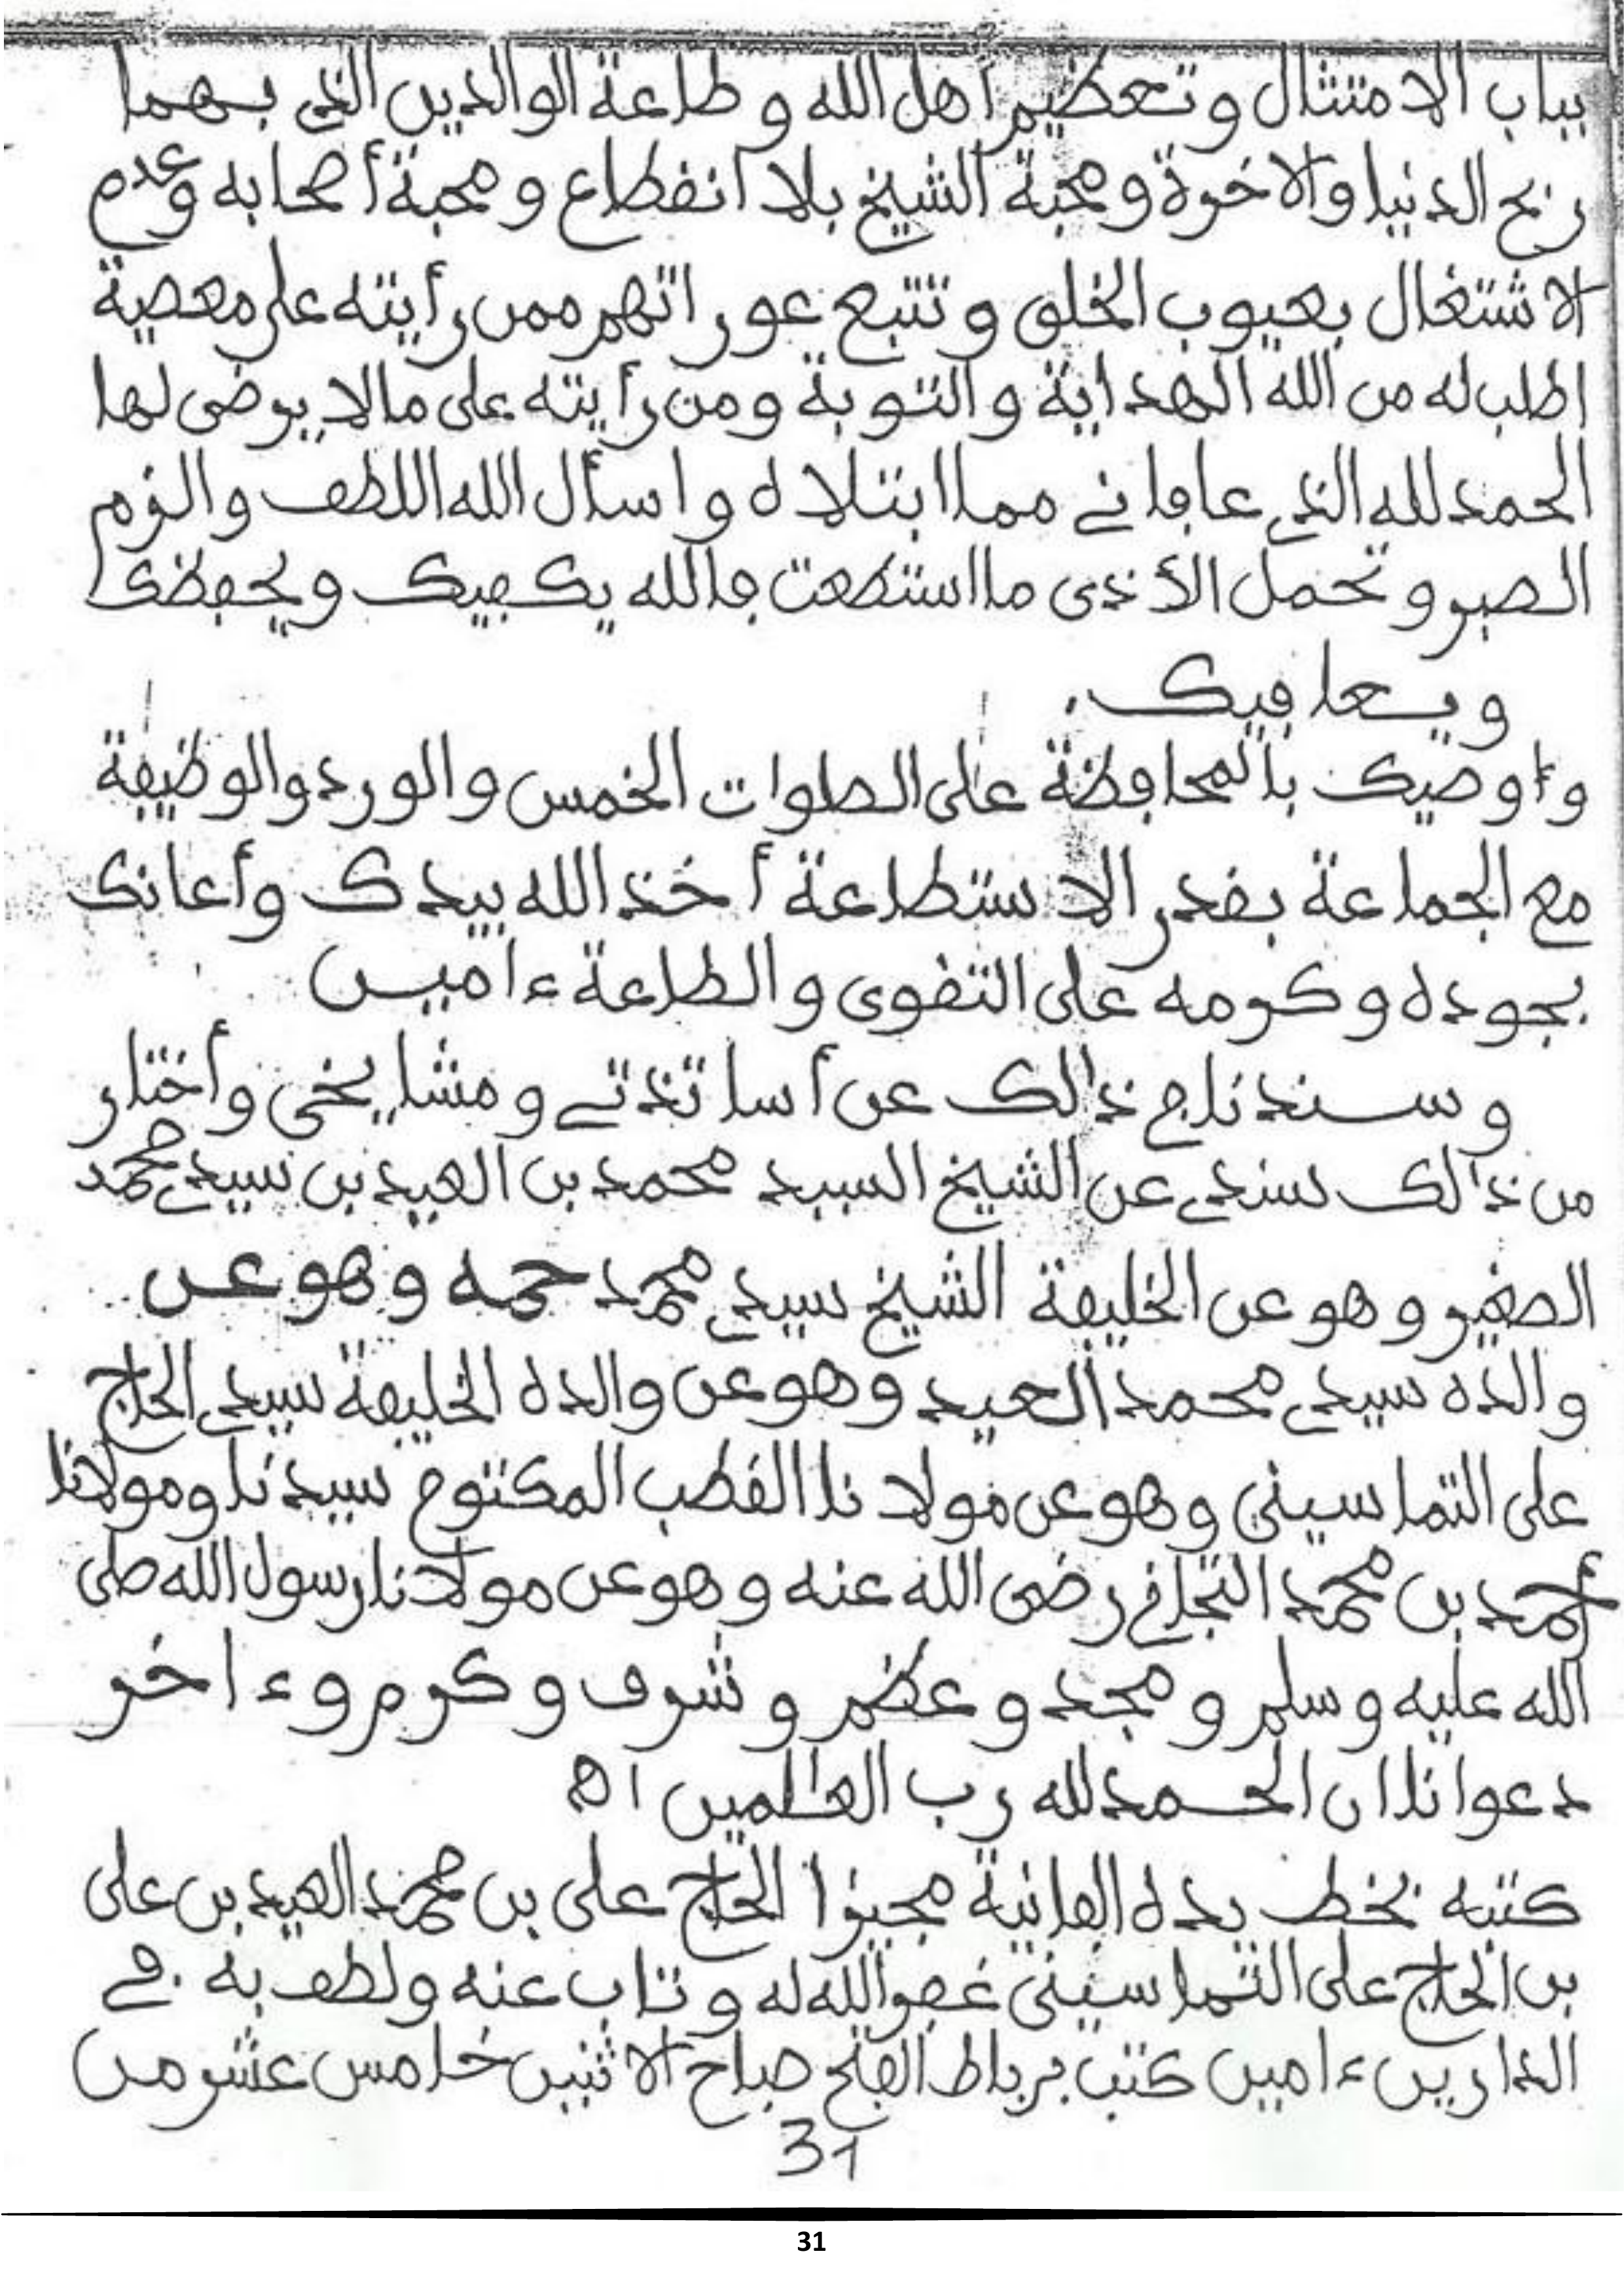 بباب الامتثال وتعظيم أهل الله وطاعة الوالدين الذي بهما
ربح الدنيا والاخرة ومحبة الشيخ بلا انقطاع ومحبة أصحابه وعدم
الاشتغال بعيوب الخلق وتتبع عوراتهم فمن رأيته على معصية
اطلب له من الله الهداية والتوبة ومن رأيته على مالا يرضى لها
الحمد لله الذي عافاني مما ابتلاه واسأل الله اللطف والزم
الصبر وتحمل الأذى ما استطعت فالله يكفيك ويحفظك
ويعافيك.
وأوصيك بالمحافظة على الصلوات الخمس والورد والوظيفة
مع الجماعة بقدر الاستطاعة أخذ الله بيدك وأعانك
بجوده وكرمه على التقوى والطاعة ءامين
وسندنا في ذالك عن أساتذتي ومشايخي وأختار
من ذالك سندي عن الشيخ السيد محمد بن العيد بن سيدي محمد
الصغير وهو عن الخليفة الشيخ سيدي محمد حمه وهو عن
والده سيدي محمد العيد وهو عن والده الخليفة سيدي الحاج
على التماسيني وهو عن مولانا القطب المكتوم سيدنا ومولانا
أحمد بن محمد التجاني رضى الله عنه وهو عن مولانا رسول الله صلى
الله عليه وسلم ومجد وعظم وشرف وكرم وءاخر
دعوانا ان الحمد لله رب العالمين اه
كتبه بخط يده الفانية مجيزا الحاج على بن محمد العيد بن على
بن الحاج على التماسيني غفر الله له وتاب عنه ولطف به في
الدارين ءامين كتب برباط الفتح صباح الاثنين خامس عشر من
31
31